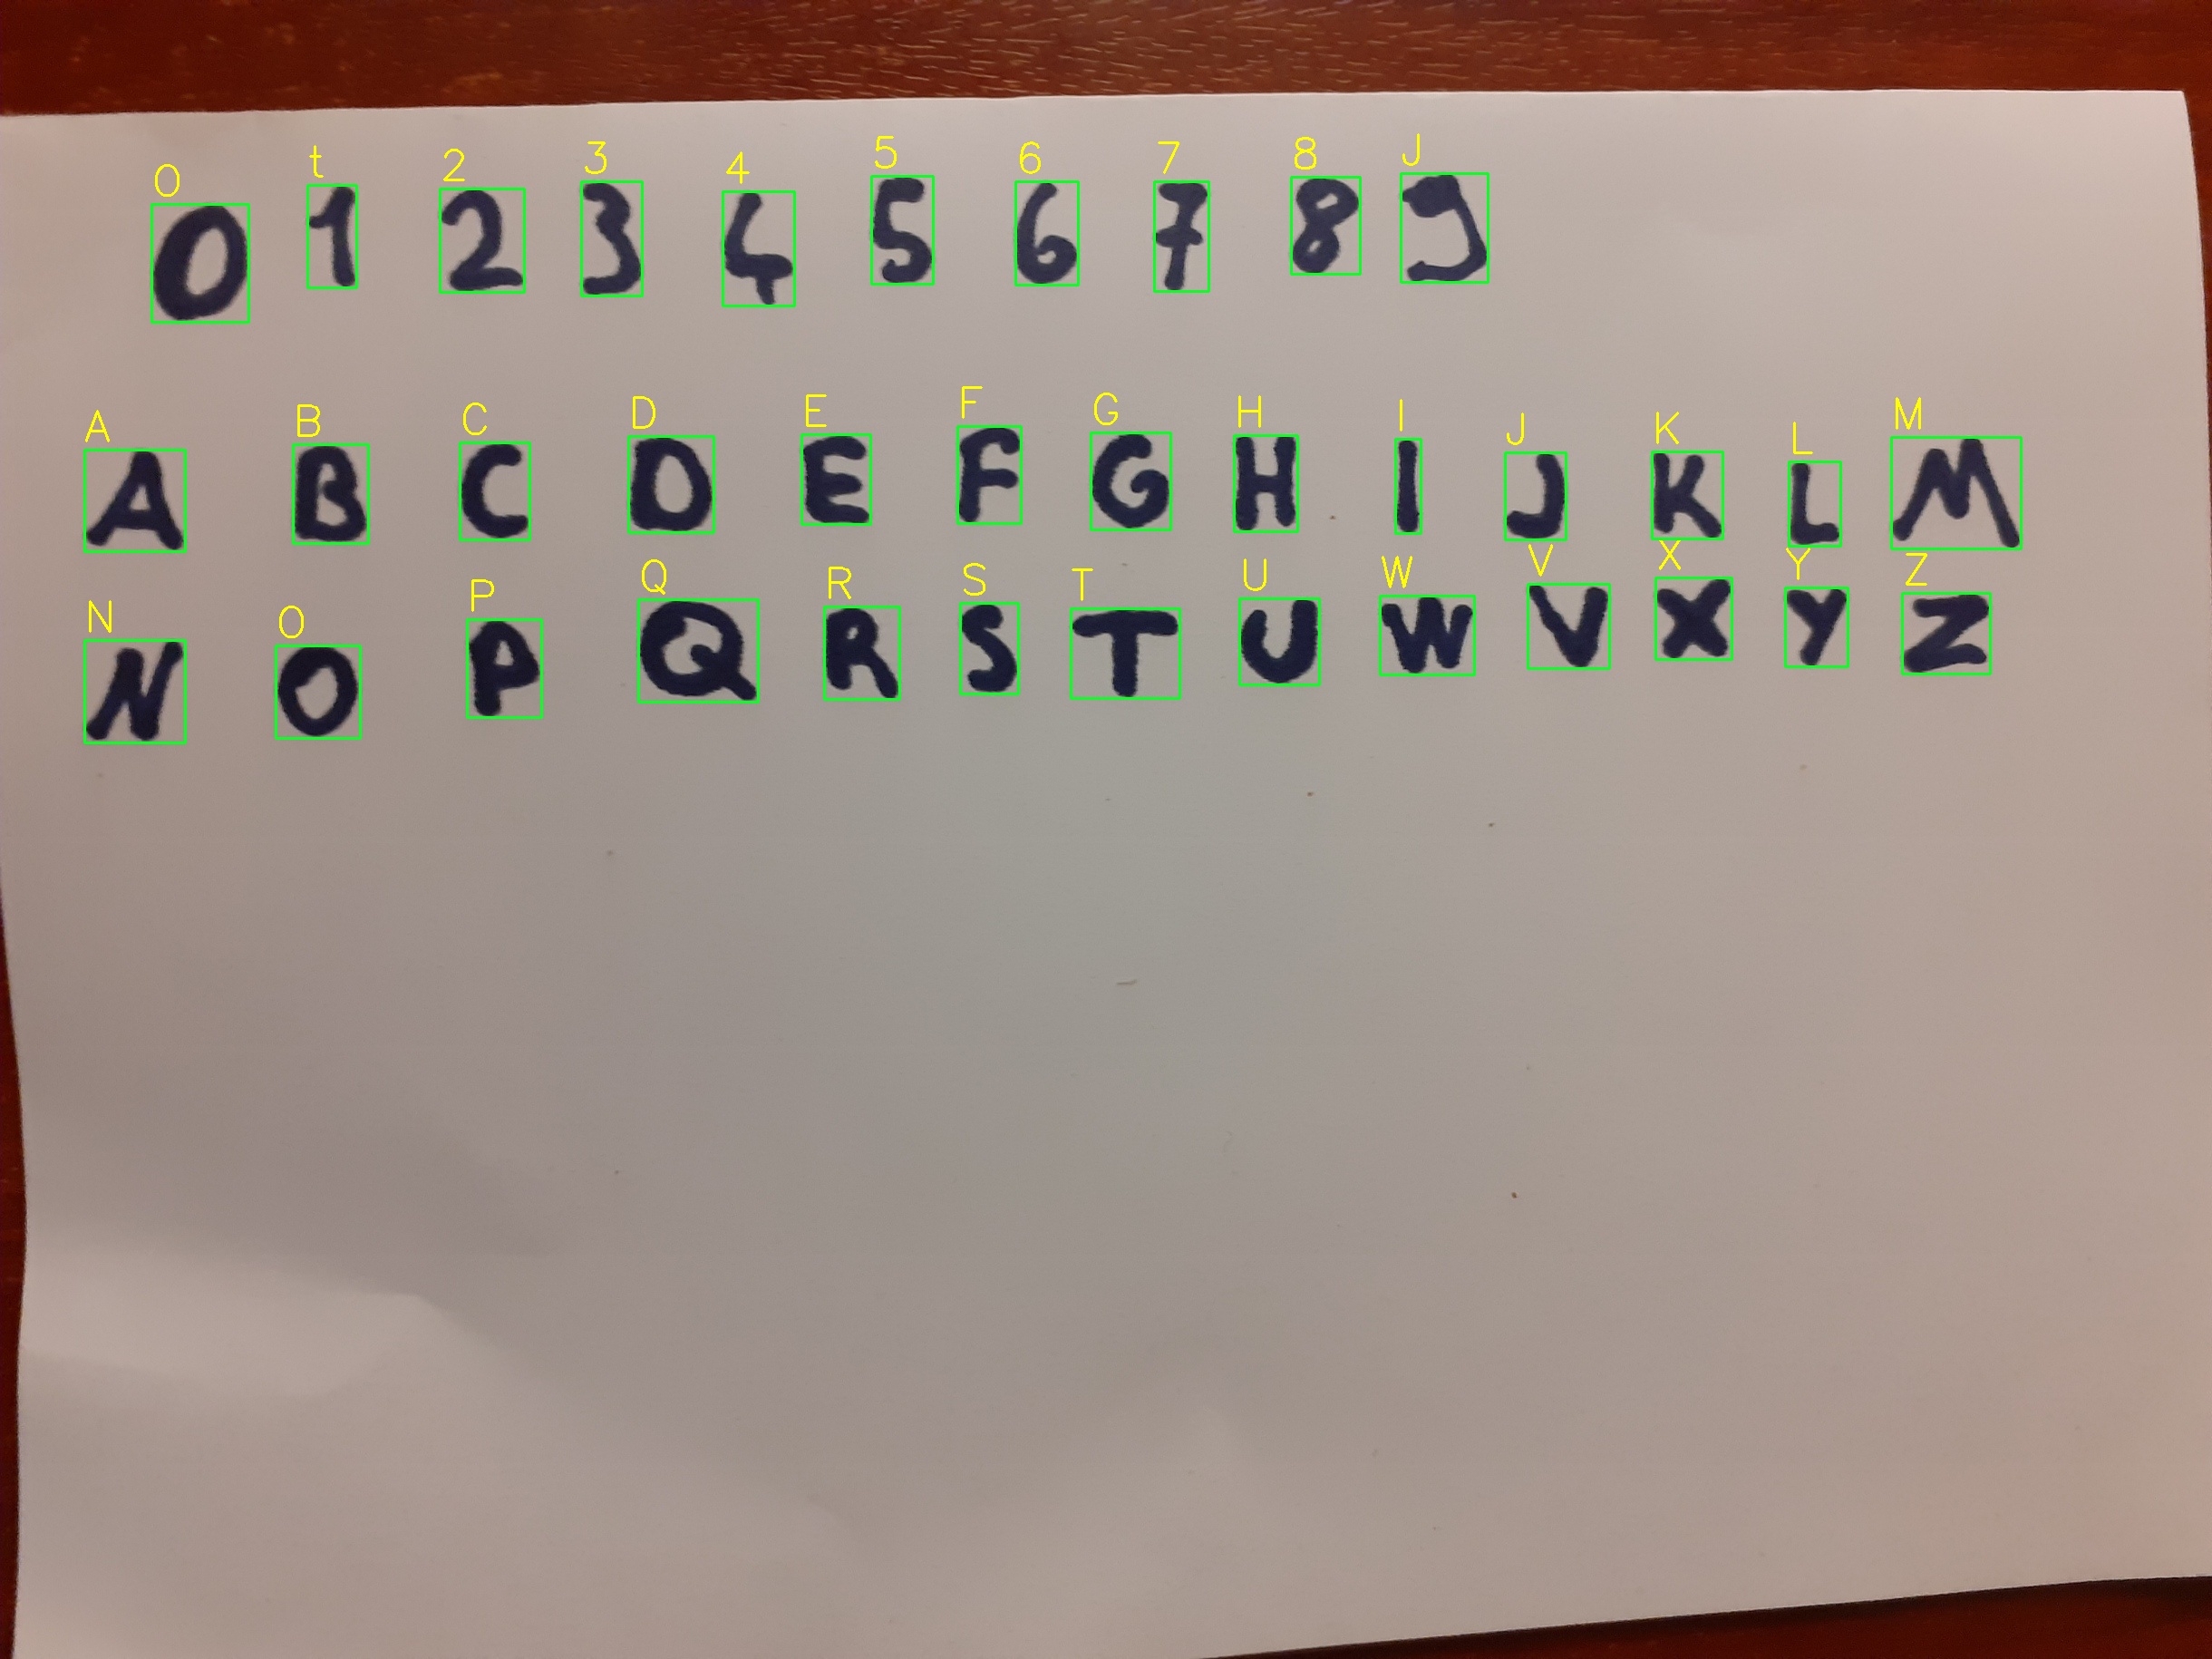 O t 2 3 4 5 6 7 8 J
0 1 2 3 4 5 6 7 8 9
A B C D E F G H I J K L M
A B C D E F G H I J K L M
N O P Q R S T U W V X Y Z
N O P Q R S T U W V X Y Z